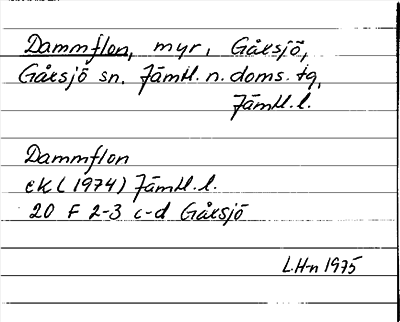 Dammflon, myr, Gåxsjö,
Gåxsjö sn. Jämtl. n. doms. tg,
Jämtl. l.
Dammflon
ek (1974) Jämtl. l.
20 F 2-3 c-d Gåxsjö
L.H-n 1975